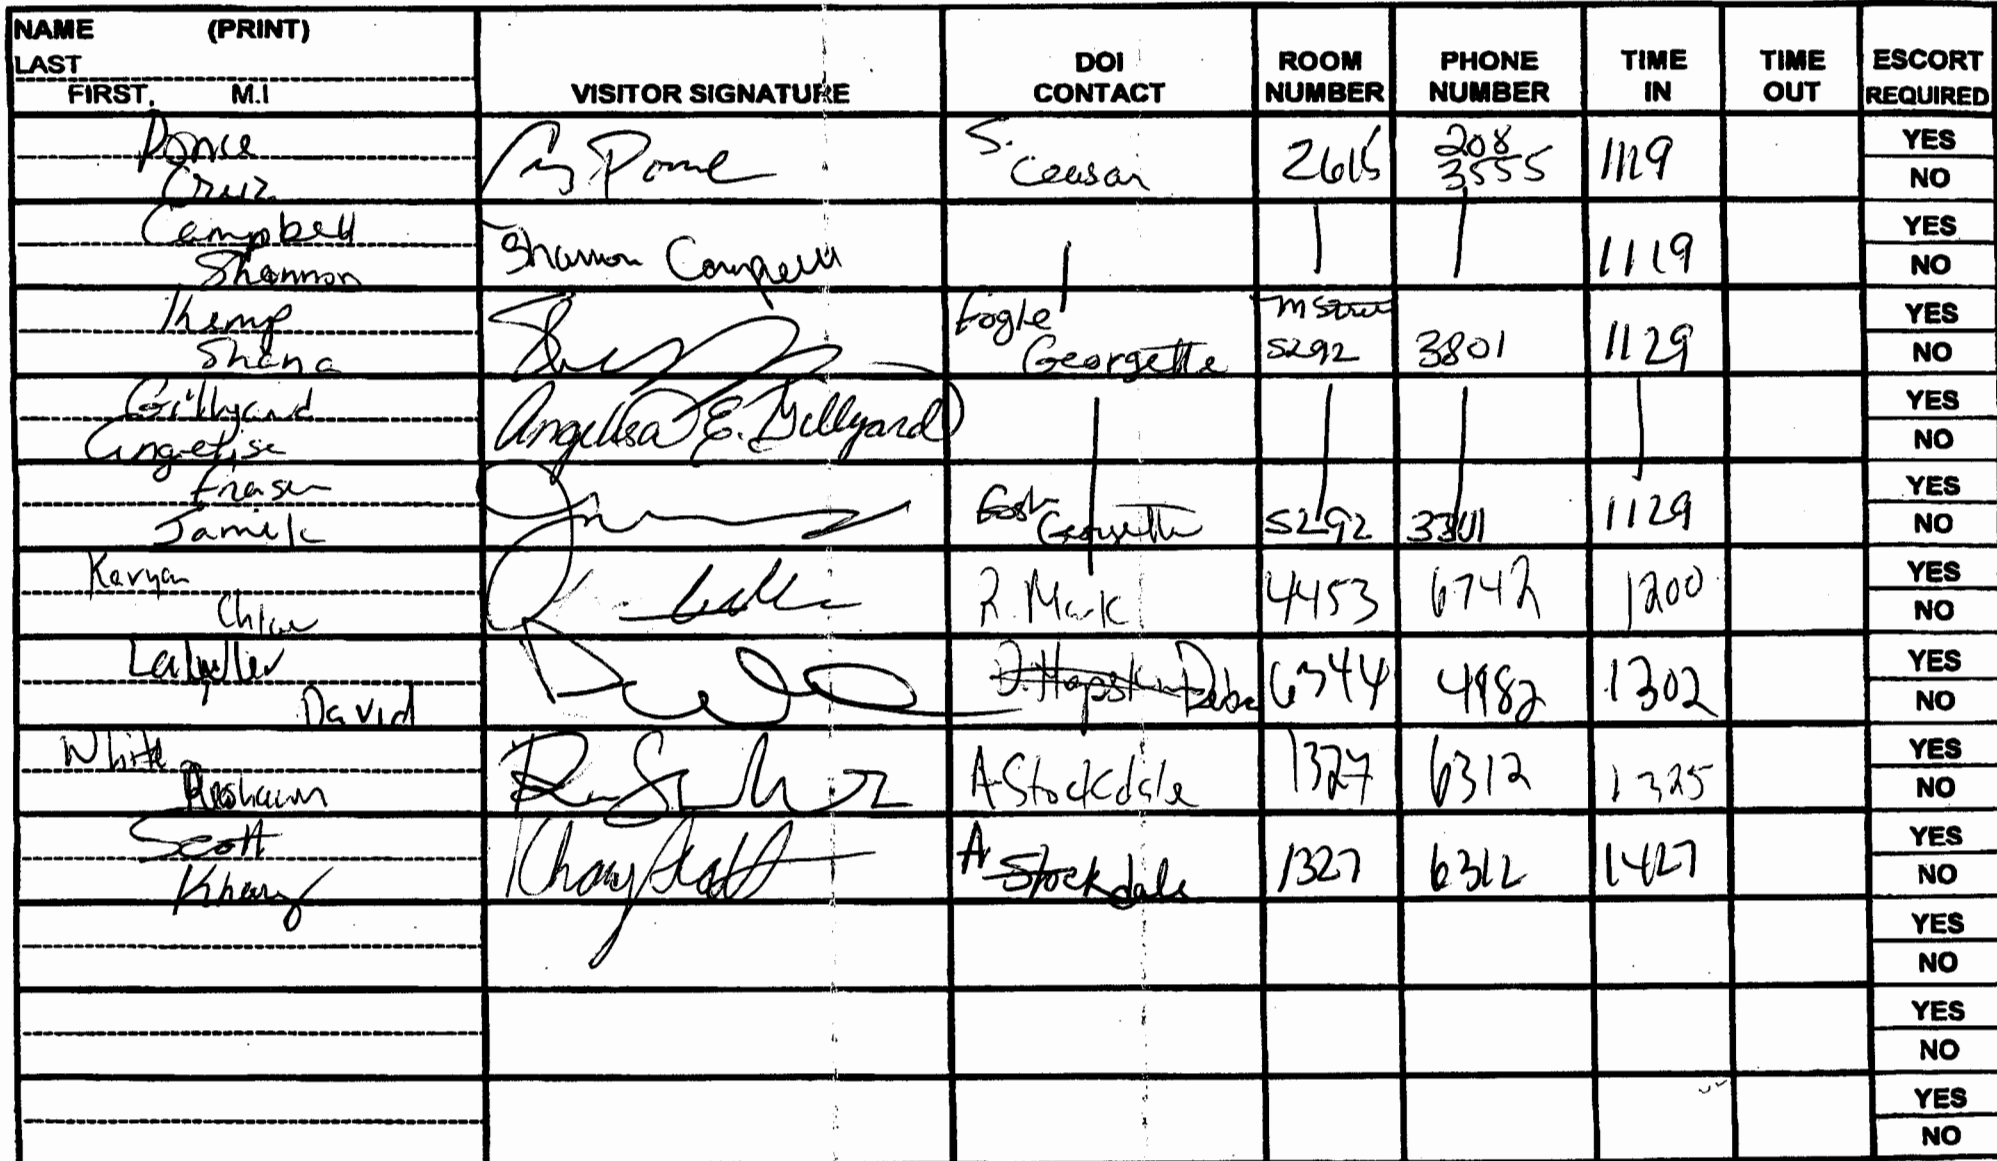 NAME (PRINT)
LAST
FIRST, M.I
VISITOR SIGNATURE
DOI
CONTACT
ROOM
NUMBER
PHONE
NUMBER
TIME
IN
TIME
OUT
ESCORT
REQUIRED
Ponce
Cruz
S.
Ceasar
2615
208
3555
1119
YES
NO
Campbell
Shannon
Shannon Campbell
1119
YES
NO
Kemp
Shana
Fogle
Georgette
M Street
5292
3801
1129
YES
NO
Gillyard
Angelisa
Angelisa E. Gillyard
YES
NO
Fraser
Jamile
Georgette
5292
1129
YES
NO
Chloe
R. Mark
4453
6742
1200
YES
NO
David
6344
4982
1302
YES
NO
White
Reshawn
A Stockdale
1327
6312
1325
YES
NO
Scott
Khary
Khary Scott
A
Stockdale
1327
6312
1427
YES
NO
YES
NO
YES
NO
YES
NO